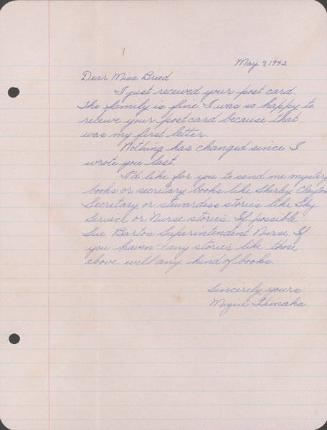 May 9, 1942
Dear Miss Breed
I just received your post card.
The family is fine. I was so happy to
receive your postcard because that
was my first letter.
Nothing has changed since I
wrote you last.
I'd like for you to send me mystery
books or secretary books like Shirley Clayton
Secretary or stewardess stories like Sky
Service or Nurse stories. If possible
Sue Barton Superintendent Nurse. If
you haven't any stories like those
above well any kind of books.
Sincerely yours